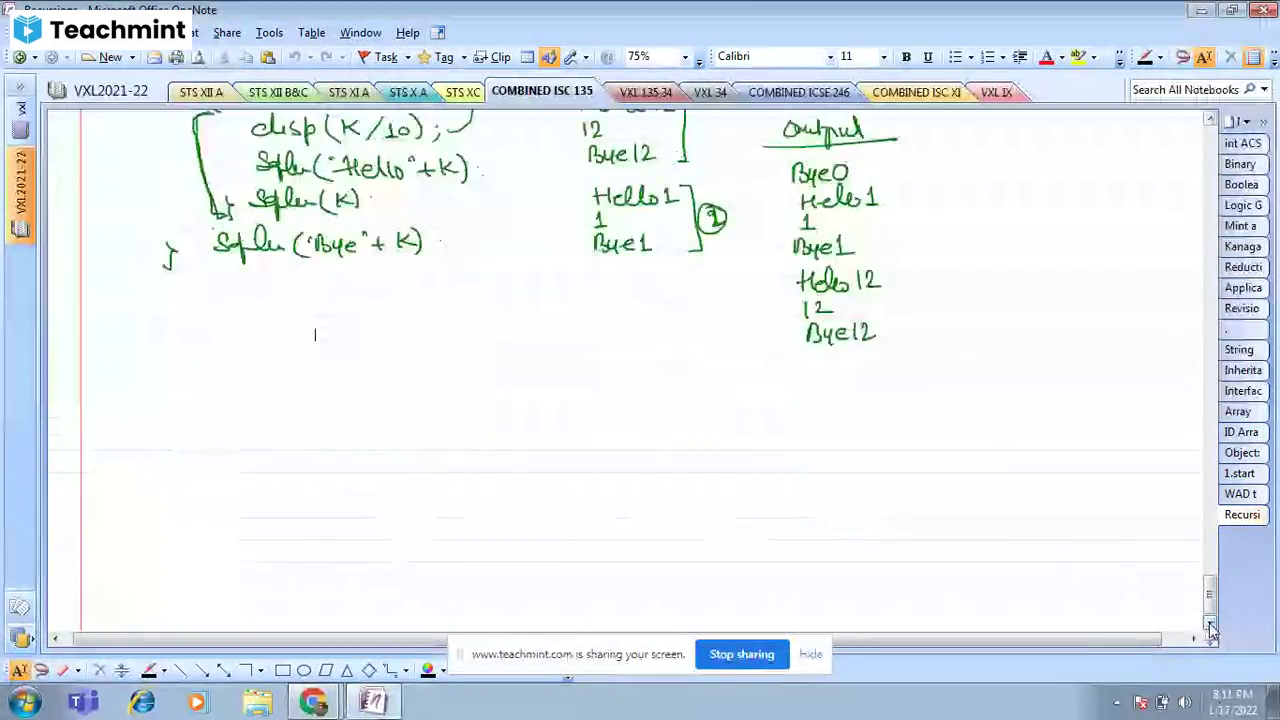 Recursions - Microsoft Office OneNote
Teachmint
Share Tools Table Window Help
New Task Tag Clip 75% Calibri 11 B
VXL2021-22 STS XII A STS XII B&C STS XI A STS X A STS XC COMBINED ISC 135 VXL 135 34 VXL 34 COMBINED ICSE 246 COMBINED ISC XI VXL IX Search All Notebooks
VXL2021-22
disp(K/10);
Sopln("Hello"+K)
} Sopln(K)
Sopln("Bye"+K)
}
12
Bye12
Hello1
1
Bye1
1
Output
Bye0
Hello1
1
Bye1
Hello12
12
Bye12
int ACS
Binary
Boolea
Logic G
Mint a
Kanaga
Reducti
Applica
Revisio
.
String
Inherita
Interfac
Array
ID Arra
Object:
1.start
WAD t
Recursi
www.teachmint.com is sharing your screen. Stop sharing Hide
8:11 PM
1/17/2022